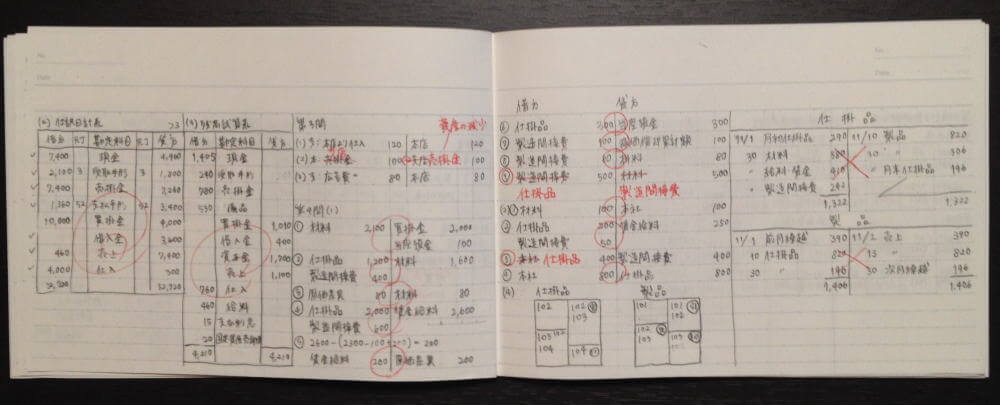 (2) 仕訳日計表
借方 元丁 勘定科目 元丁 貸方
7,400 現金 4,900
2,100 3 受取手形 3 1,800
7,400 売掛金 7,260
1,360 52 支払手形 52 3,400
10,000 買掛金 4,000
借入金 3,600
460 売上 7,400
4,000 仕入 300
32,720 32,720
(3) 残高試算表
借方 勘定科目 貸方
1,405 現金
240 受取手形
780 売掛金
530 備品
買掛金 1,010
借入金 400
資本金 1,700
売上 1,100
760 仕入
460 給料
15 支払利息
20
4,210 4,210
第3問
資産の減少
本店 120
100 売掛金 100
80 本店 80
第4問(1)
① 材料 2,100 買掛金 2,000
当座預金 100
② 仕掛品 1,200 材料 1,600
製造間接費 400
③ 原価差異 80 材料 80
④ 仕掛品 2,000 賃金給料 2,600
製造間接費 600
⑤ 2600-(2300-100+200)=200
賃金給料 200 原価差異 200
借方 貸方
⑥ 仕掛品 300 当座預金 300
⑦ 製造間接費 100 100
⑧ 製造間接費 80 材料 80
⑨ 製造間接費 500 材料 500
仕掛品 製造間接費
(2)① 材料 100 本社
② 仕掛品 200 賃金給料 250
製造間接費 50
③ 本社 仕掛品 400 製造間接費 400
④ 本社 800 仕掛品 800
(4) 仕掛品 製品
102 102
103
103 102
104 104
101 101
102
102 103
103
仕掛品
11/1 月初仕掛品 290 11/10 製品 820
30 材料 580 30 〃 306
〃 給料・賃金 210 〃 月末仕掛品 196
〃 製造間接費 242
1,322 1,322
製品
11/1 前月繰越 390 11/2 売上 390
10 仕掛品 820 13 〃 820
30 〃 196 30 次月繰越 196
1,406 1,406